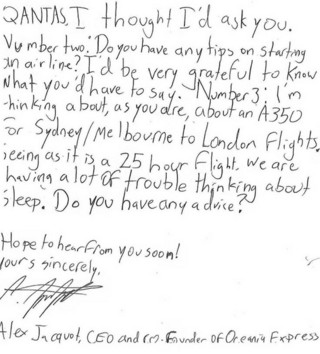 QANTAS, I thought I'd ask you.
Number two: Do you have any tips on starting
an airline? I'd be very grateful to know
what you'd have to say. Number 3: I'm
thinking about, as you are, about an A350
for Sydney/Melbourne to London Flights.
seeing as it is a 25 hour flight, we are
having a lot of trouble thinking about
sleep. Do you have any advice?
Hope to hear from you soon!
Yours sincerely,
Alex Jacquot, CEO and co-founder of Oceania Express